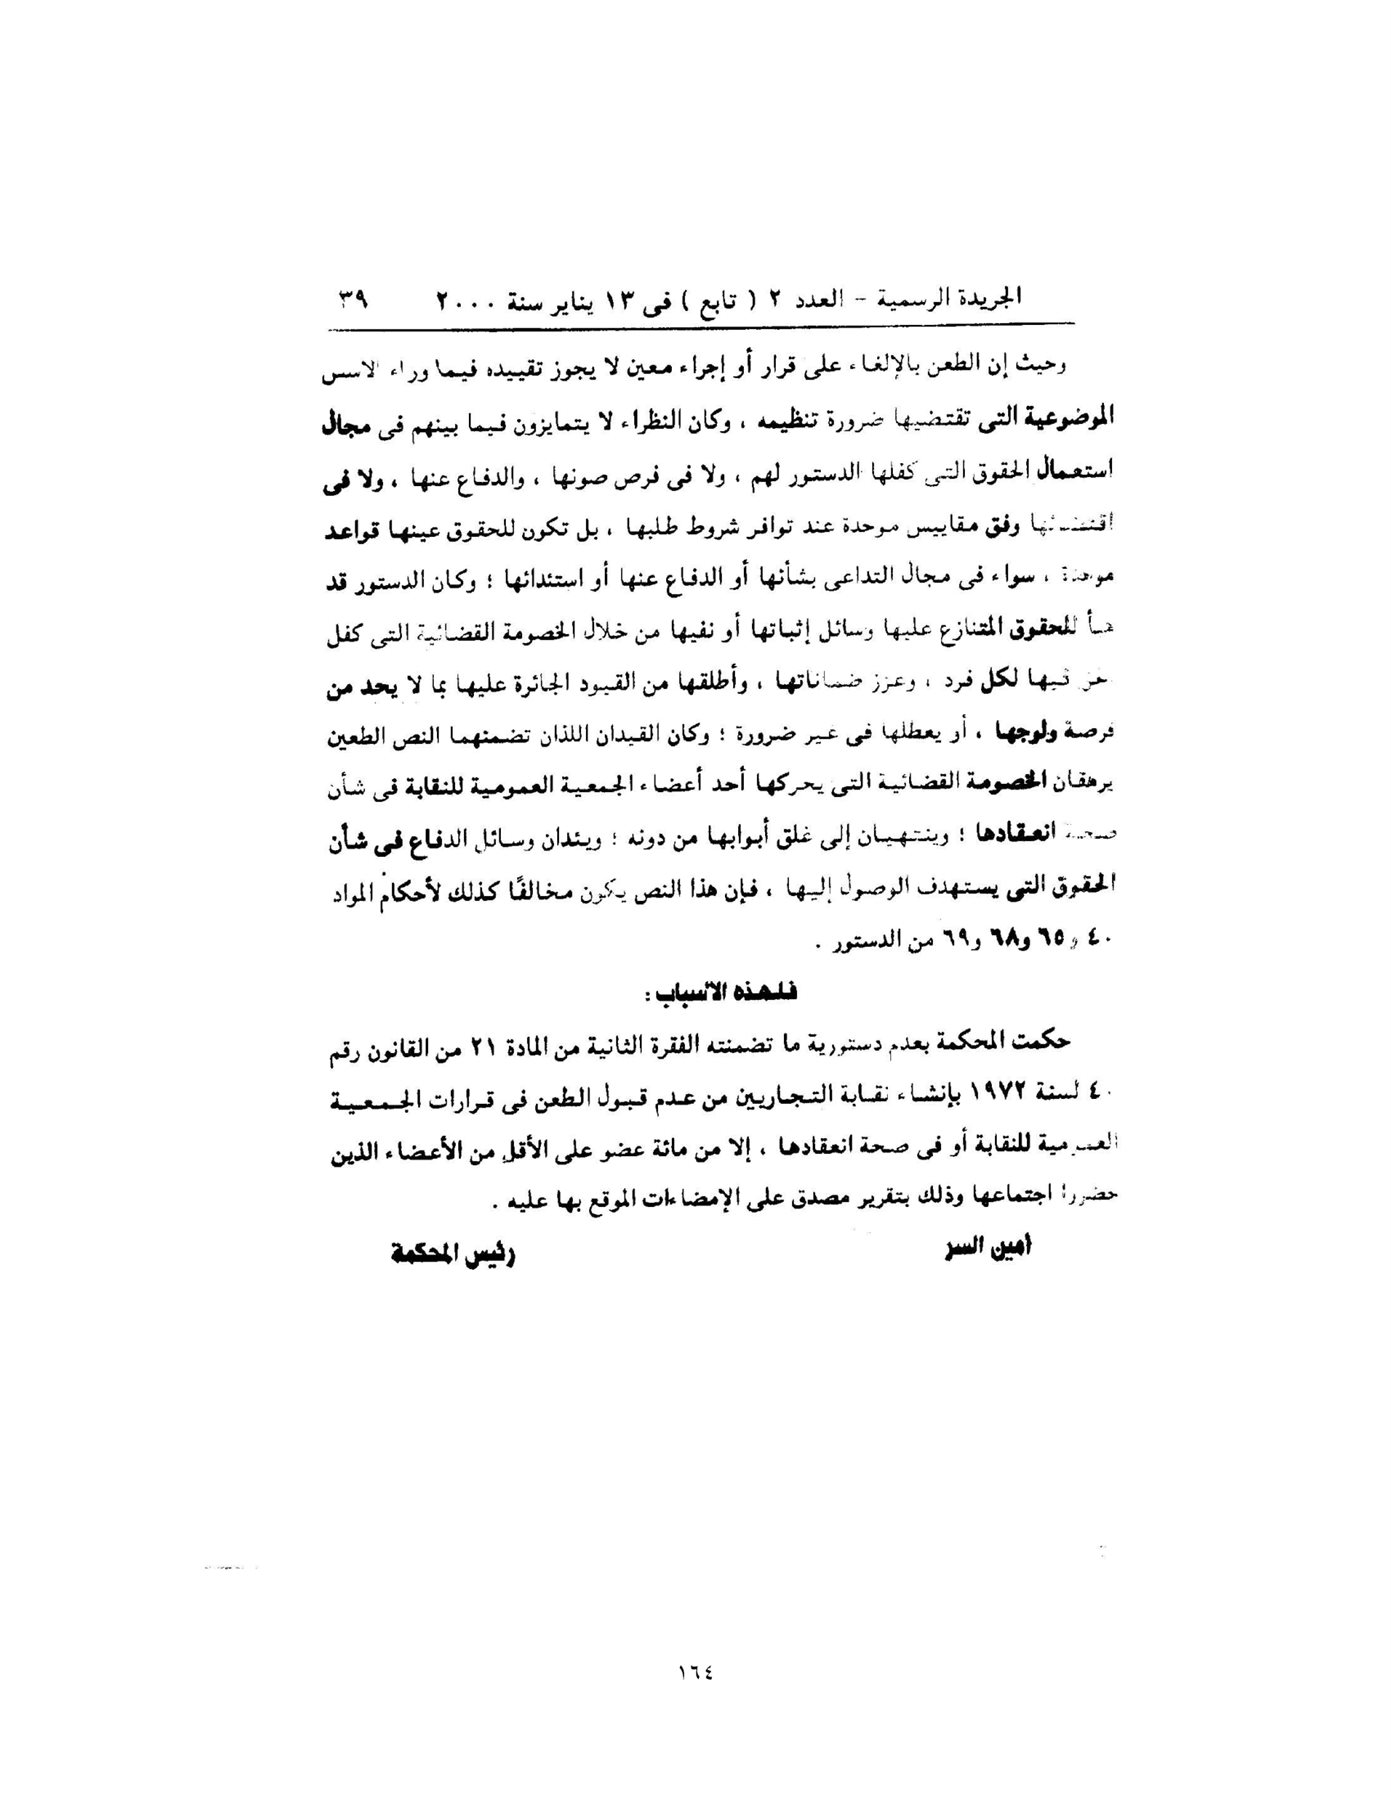 الجريدة الرسمية - العدد ٢ ( تابع ) فى ١٣ يناير سنة ٢٠٠٠ ٣٩
وحيث إن الطعن بالإلغاء على قرار أو إجراء معين لا يجوز تقييده فيما وراء الأسس
الموضوعية التى تقتضيها ضرورة تنظيمه ، وكان النظراء لا يتمايزون فيما بينهم فى مجال
استعمال الحقوق التى كفلها الدستور لهم ، ولا فى فرص صونها ، والدفاع عنها ، ولا فى
اقتضائها وفق مقاييس موحدة عند توافر شروط طلبها ، بل تكون للحقوق عينها قواعد
موحدة ، سواء فى مجال التداعى بشأنها أو الدفاع عنها أو استئدائها ؛ وكان الدستور قد
هيأ للحقوق المتنازع عليها وسائل إثباتها أو نفيها من خلال الخصومة القضائية التى كفل
فيها لكل فرد ، وعزز ضماناتها ، وأطلقها من القيود الجائرة عليها بما لا يحد من
فرصة ولوجها ، أو يعطلها فى غير ضرورة ؛ وكان القيدان اللذان تضمنهما النص الطعين
يرهقان الخصومة القضائية التى يحركها أحد أعضاء الجمعية العمومية للنقابة فى شأن
صحة انعقادها ؛ وينتهيان إلى غلق أبوابها من دونه ؛ ويئدان وسائل الدفاع فى شأن
الحقوق التى يستهدف الوصول إليها ، فإن هذا النص يكون مخالفًا كذلك لأحكام المواد
٤٠ و٦٥ و٦٨ و٦٩ من الدستور .
فلهذه الأسباب :
حكمت المحكمة بعدم دستورية ما تضمنته الفقرة الثانية من المادة ٢١ من القانون رقم
٤٠ لسنة ١٩٧٢ بإنشاء نقابة التجاريين من عدم قبول الطعن فى قرارات الجمعية
العمومية للنقابة أو فى صحة انعقادها ، إلا من مائة عضو على الأقل من الأعضاء الذين
حضروا اجتماعها وذلك بتقرير مصدق على الإمضاءات الموقع بها عليه .
أمين السر رئيس المحكمة
١٦٤